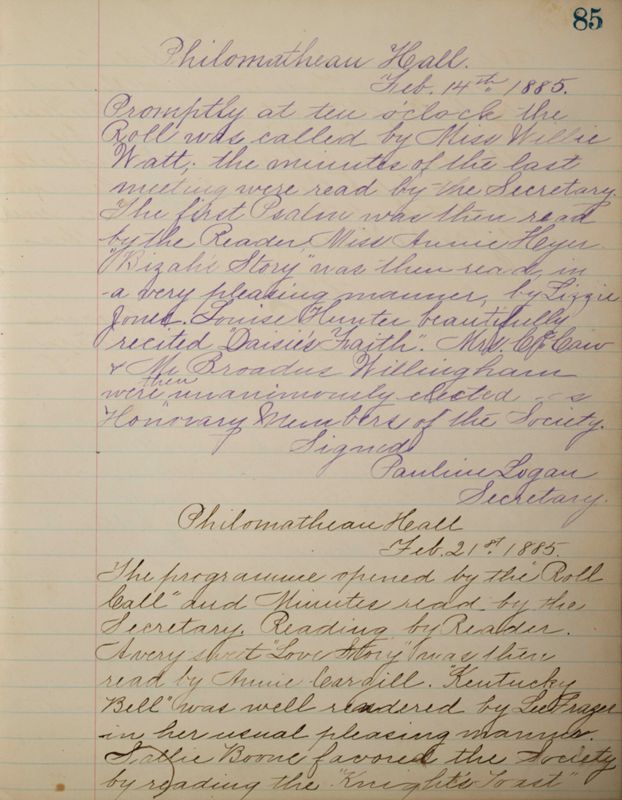 85
Philomathean Hall.
Feb. 14th 1885.
Promptly at ten o'clock the
Roll was called by Miss Willie
Watt; the minutes of the last
meeting were read by the Secretary.
The first Psalm was then read
by the Reader, Miss Annie Heyer.
"Bizah's Story" was then read, in
a very pleasing manner, by Lizzie
Jones. Louise Hunter beautifully
recited "Daisie's Faith". Mrs
& Mr Broadus Willingham
were then unanimously elected as
Honorary Members of the Society.
Signed
Pauline Logan
Secretary.
Philomathean Hall
Feb. 21st 1885.
The programme opened by the "Roll
Call" and Minutes read by the
Secretary. Reading by Reader.
A very sweet "Love Story" was then
read by Annie Cargill. "Kentucky
Bell" was well rendered by Lee Frazer
in her usual pleasing manner.
Sallie Boone favored the Society
by reading the "Knight's Toast"